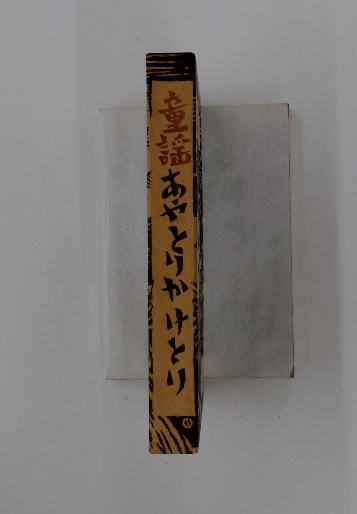 童謡
あやとりかけとり